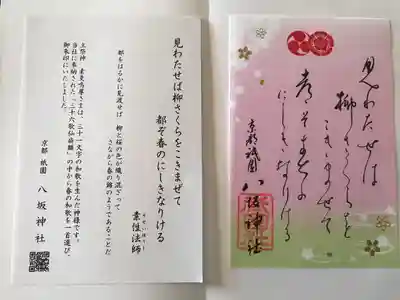 見わたせば柳さくらをこきまぜて
都ぞ春のにしきなりける
都をはるかに見渡せば 柳と桜の色が織り混ざって
さながら春の錦のようであることだ
素性法師
そせいほうし
主祭神 素戔嗚尊さまは、三十一文字の和歌を生んだ神様です。
当社に奉納された「三十六歌仙扁額」の中から春の和歌を一首選び、
御朱印にいたしました。
京都 祇園 八坂神社
見わたせは
柳さくらを
こきませて
都そ春の
にしきなりける
京都祇園
八坂神社